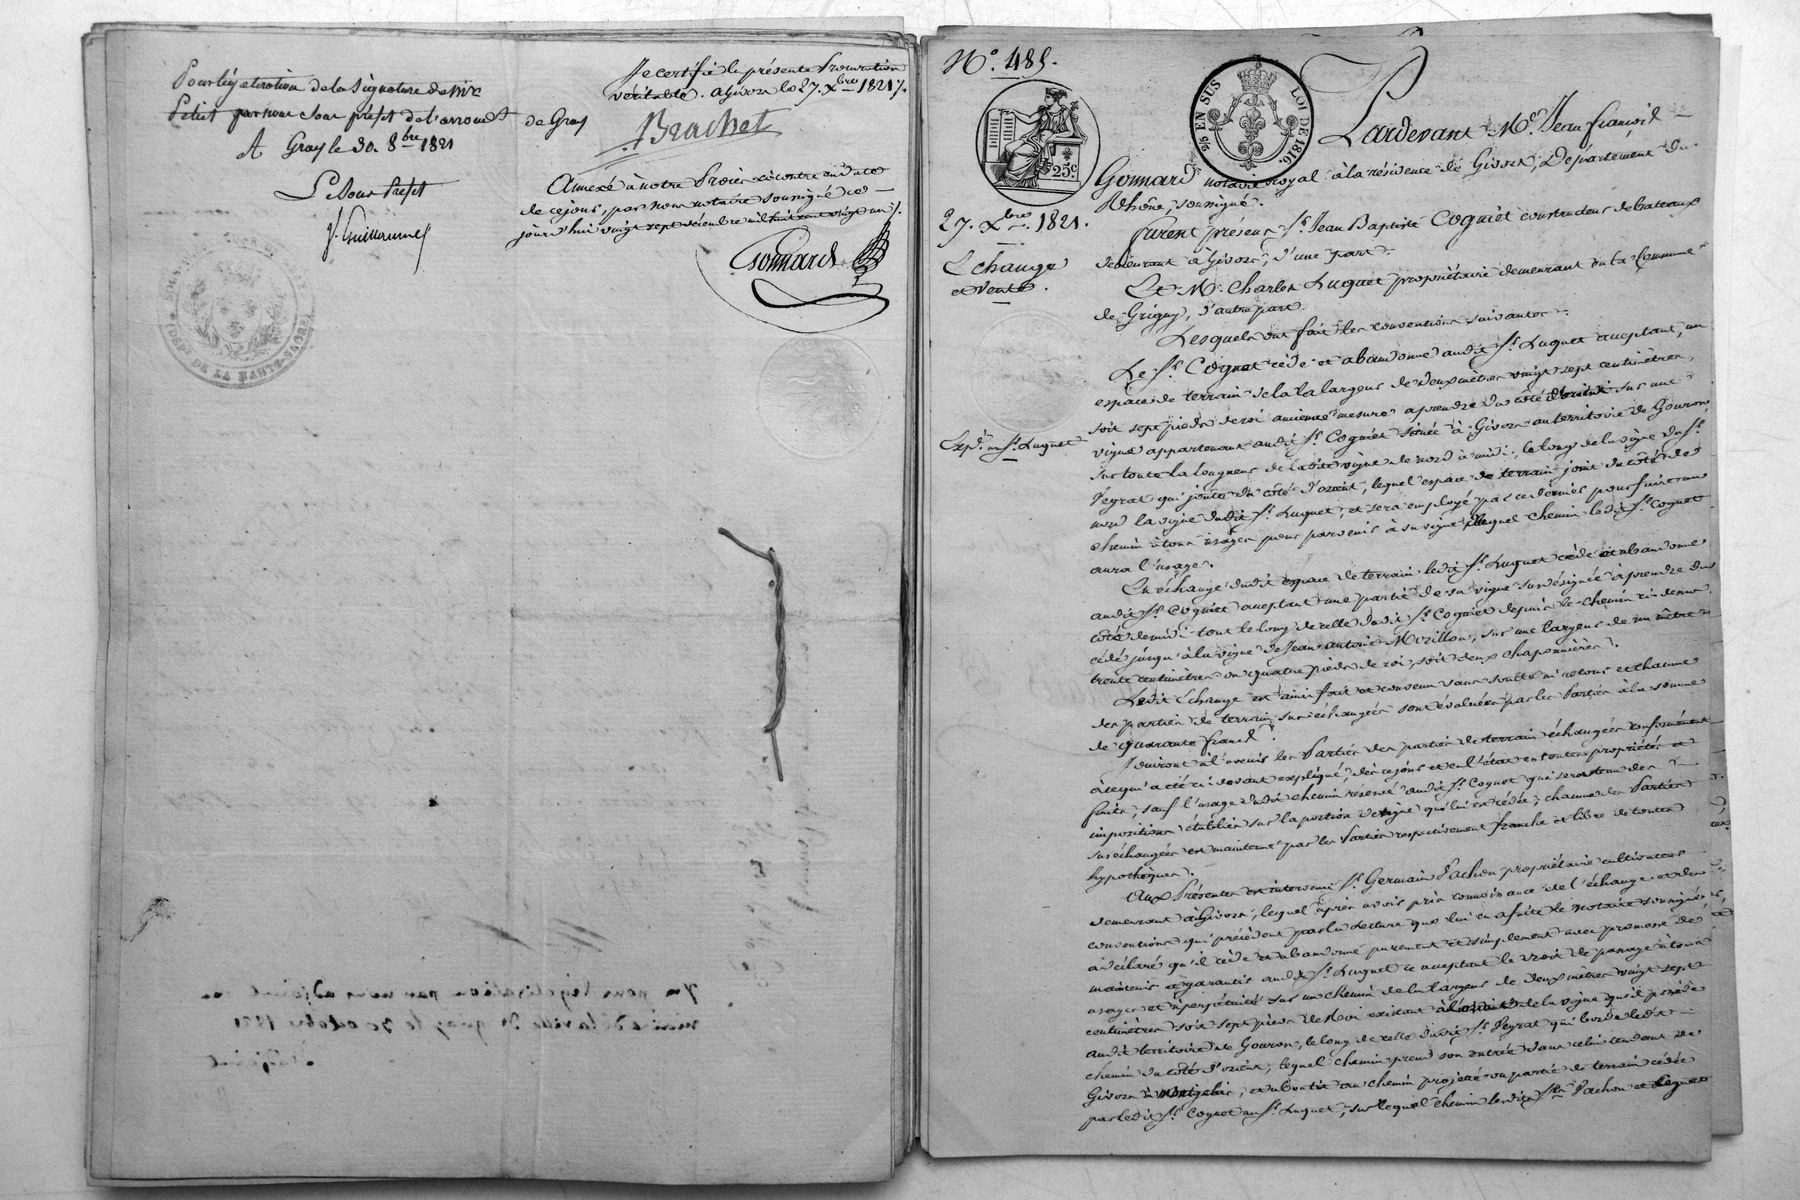 Pour légalisation de la Signature de Mr
Petit par nous sous préfet de l'arrondt de Gray
A Gray le 30. 8bre 1821
Le Sous Préfet
Je certifie la présente Procuration
véritable. a Givors le 27. Xbre 1821 /.
Brachet
Annexé à notre
de cejour, par nous notaire soussigné ce
jourd'hui vingt sept décembre mil huit cent vingt un /.
Gonnard
DE LA HAUTE-SAONE
Vu pour légalisation par nous adjoint au
maire de la ville de Gray le 30 octobre 1821
L'adjoint
N° 485.
25c
EN SUS
LOI DE 1816.
27. Xbre 1821.
Echange
et Vente.
Expn au Sr. Luquet
Pardevant Me. Jean François
Gonnard notaire royal à la résidence de Givors, Département du
Rhône, soussigné.
Furent présens Sr. Jean Baptiste Coguet constructeur de bateaux
demeurant à Givors, d'une part.
Et Mr. Charles Luquet propriétaire demeurant en la Commune
de Grigny, d'autre part.
Lesquels ont fait les conventions suivantes.
Le Sr. Coguet cède et abandonne audit Sr. Luquet acceptant, un
espace de terrain de la largeur de deux mètres vingt sept centimètres,
soit sept pieds de roi ancienne mesure à prendre du côté d'orient sur une
vigne appartenant audit Sr. Coguet située à Givors au territoire de Gouron
sur toute la longueur de ladite vigne de nord à midi, le long de la vigne du Sr.
Peyrat qui joute du côté d'orient, lequel espace de terrain joint du côté de
nord la vigne dudit Sr. Luquet, et sera employé par ce dernier pour faire un
chemin à tous usages pour parvenir à sa vigne, duquel chemin ledit Sr. Coguet
aura l'usage.
En échange dudit espace de terrain ledit Sr. Luquet cède et abandonne
audit Sr. Coguet acceptant une partie de sa vigne susdésignée à prendre du
côté de midi tout le long de celle dudit Sr. Coguet depuis le chemin ci dessus
cédé jusqu'à la vigne de Jean Antoine Morillon, sur une largeur de un mètre
trente centimètres ou quatre pieds de roi, soit deux chaponnières.
Ledit Echange est ainsi fait et convenu sans soulte ni retour et chacune
des parties de terrain sus échangées sont évaluées par les Parties à la somme
de quarante francs.
Jouiront à l'avenir les Parties des parties de terrain échangées conformément
à ce qui a été ci devant expliqué, dès ce jour et en l'état en toutes propriétés et
fruits, sauf l'usage dudit chemin réservé audit Sr. Coguet qui sera tenu des
impositions établies sur la portion de vigne qui lui est cédée; chacune des Parties
sus échangées est maintenue par les Parties respectivement franche et libre de toutes
hypothèques.
Aux Présentes est intervenu Sr. Germain Pachon propriétaire cultivateur
demeurant à Givors, lequel après avoir pris connaissance de l'échange et des
conventions qui précèdent par la lecture que lui en a faite le notaire soussigné
a déclaré qu'il cède et abandonne purement et simplement avec promesse de
maintenir et garantir audit Sr. Luquet ce acceptant le droit de passage à tous
usages et à perpétuité sur un chemin de la largeur de deux mètres vingt sept
centimètres soit sept pieds de Roi existant à l'orient de la vigne qu'il possède
audit territoire de Gouron, le long de celle dudit Sr. Peyrat qui borde ledit
chemin du côté d'orient, lequel chemin prend son entrée dans celui tendant de
Givors à , et aboutit au chemin projetté ou partie de terrain cédée
par ledit Sr. Coguet au Sr. Luquet, sur lequel chemin lesdits Srs. Pachon et Coguet